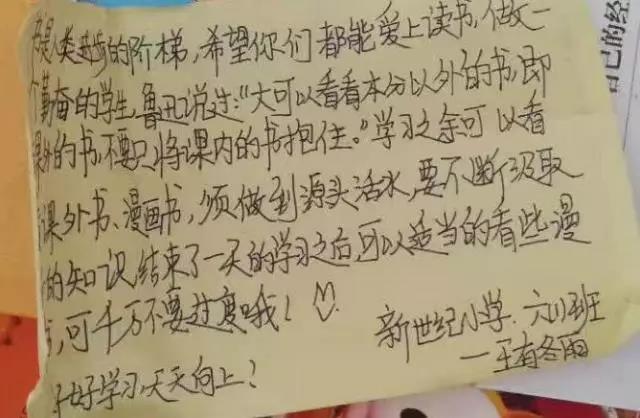 书是人类进步的阶梯,希望你们都能爱上读书,做一
个勤奋的学生,鲁迅说过:"大可以看看本分以外的书,即
课外的书,不要只将课内的书抱住。"学习之余可以看
课外书、漫画书,须做到源头活水,要不断汲取
的知识,结束了一天的学习之后,可以适当的看些漫
,可千万不要过度哦!
新世纪小学.六(1)班
好好学习,天天向上!
自己的经